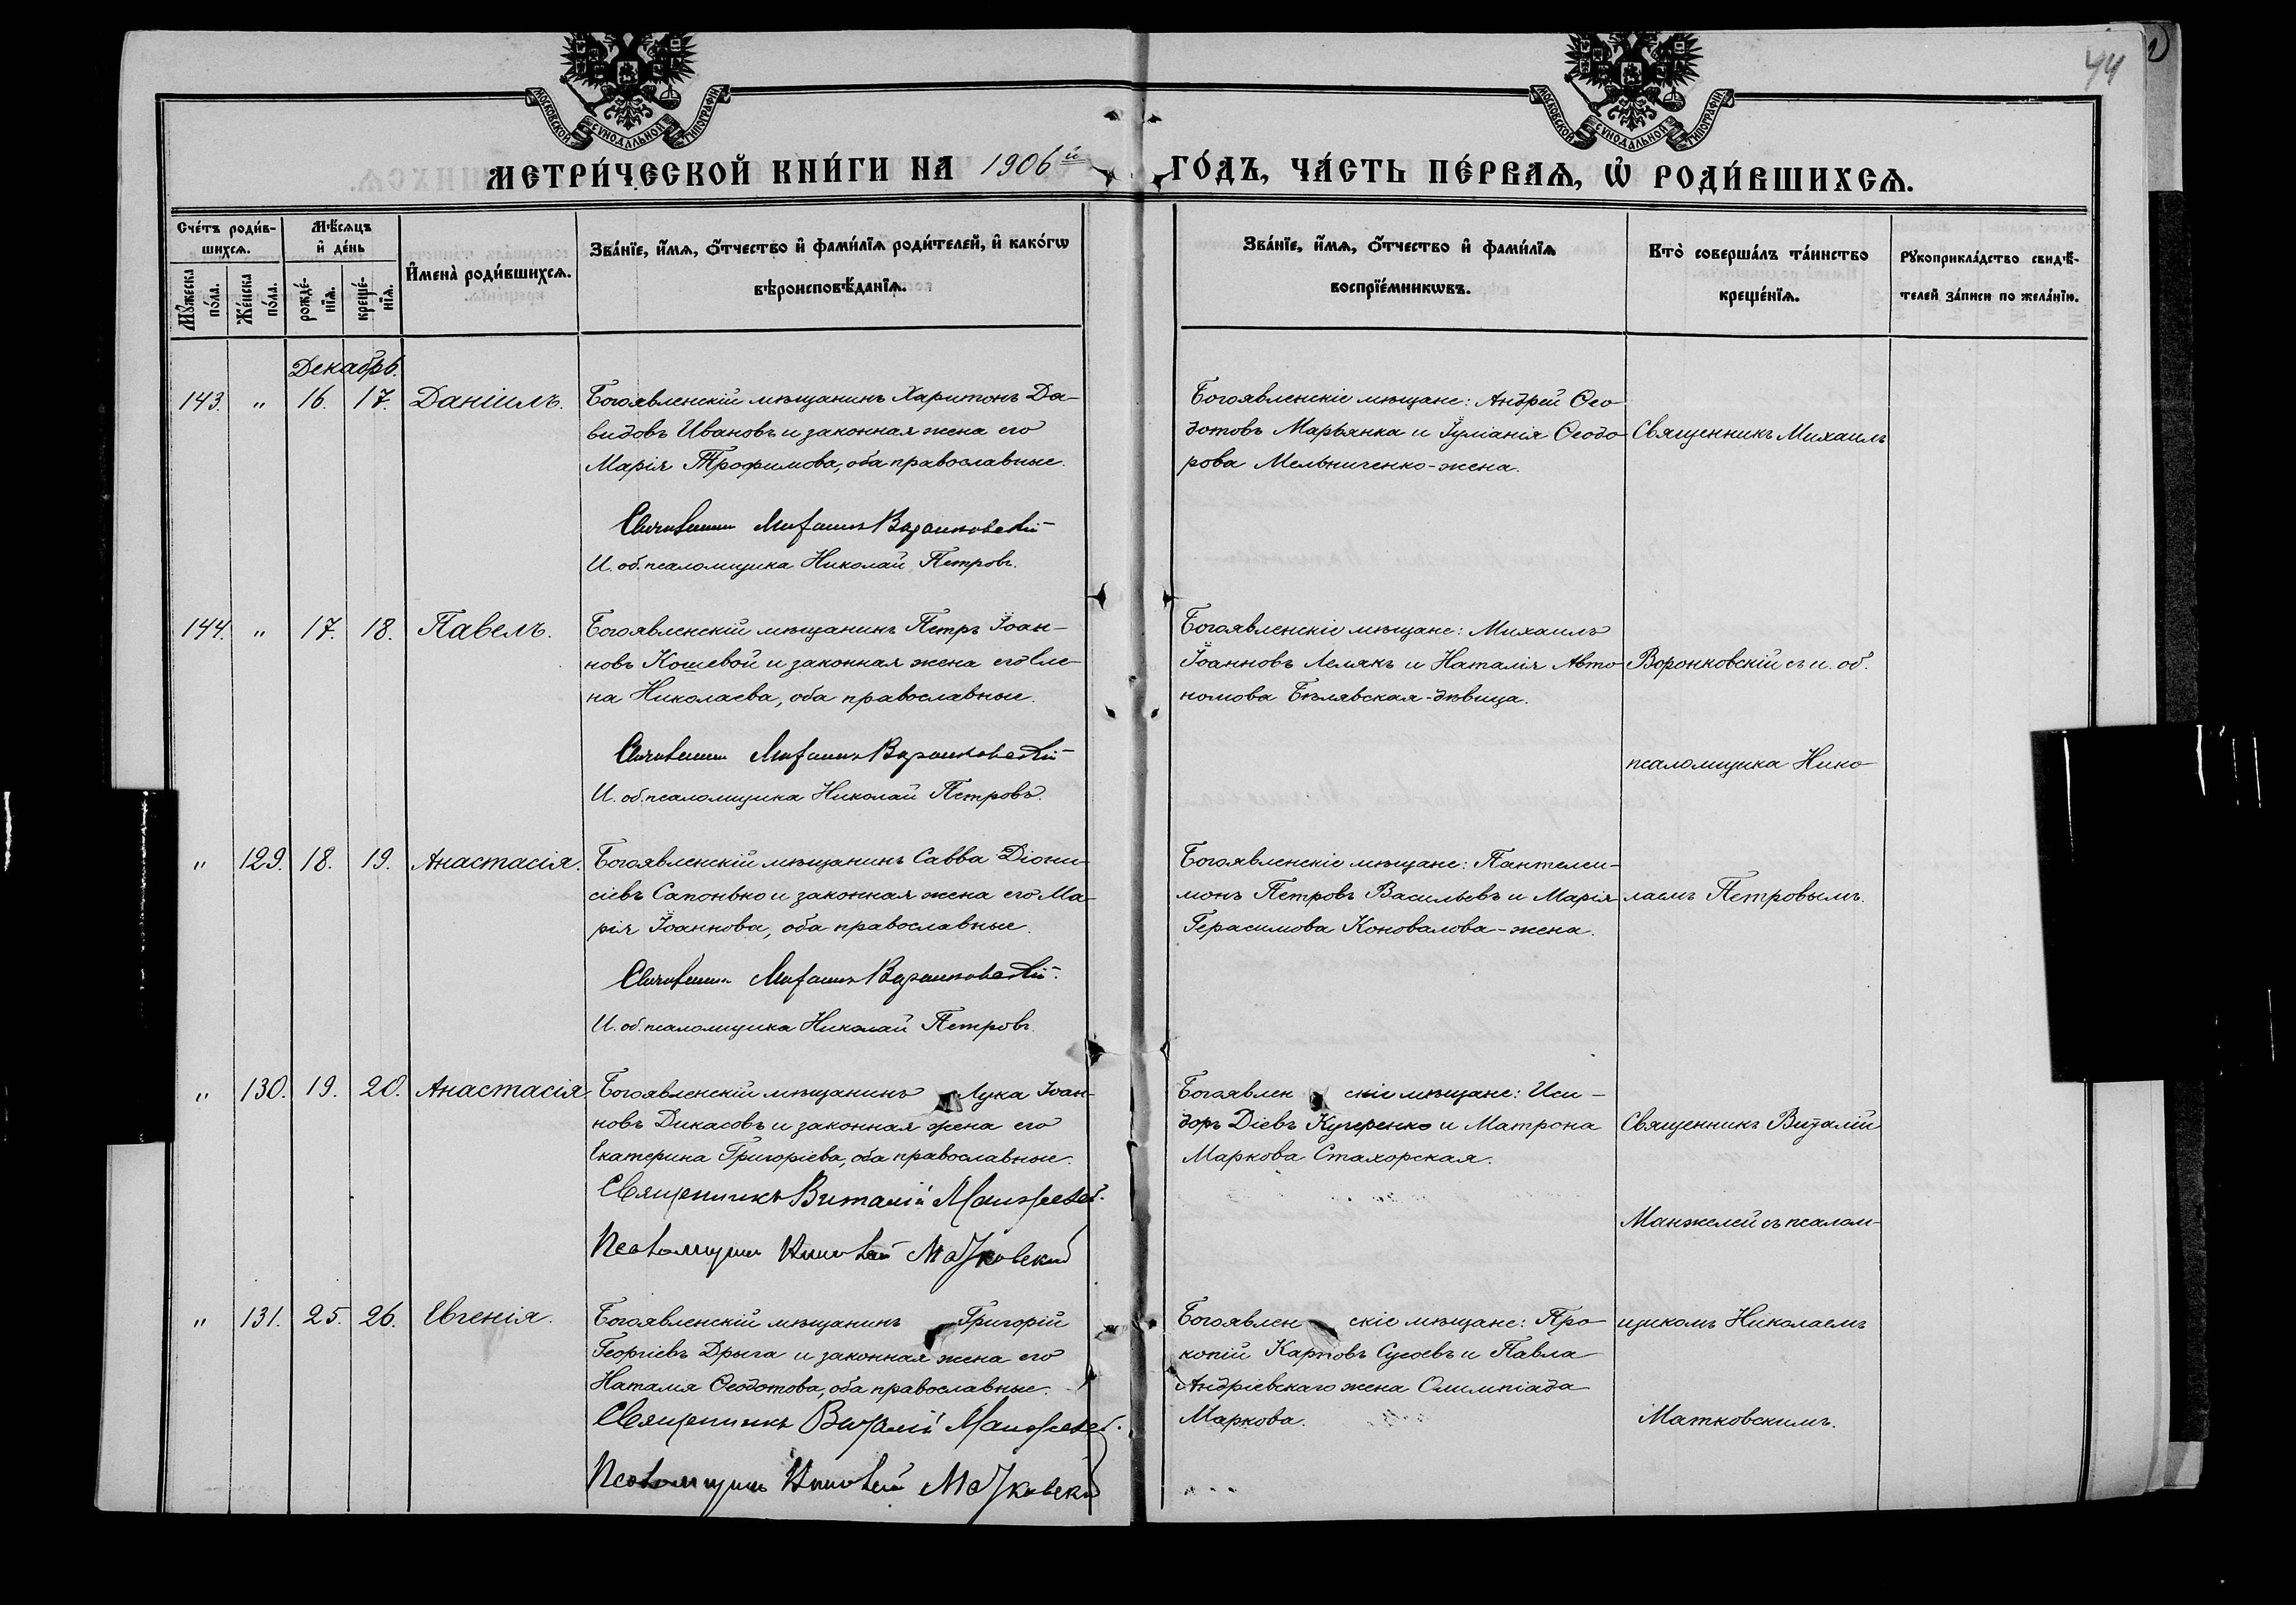 44
МОСКОВСКОЙ СѴНОДАЛЬНОЙ ТИПОГРАФІИ
МОСКОВСКОЙ СѴНОДАЛЬНОЙ ТИПОГРАФІИ
МЕТРИ́ЧЕСКОЙ КНИ́ГИ НА 1906й ГО́ДЪ, ЧА́СТЬ ПЕ́РВАѦ, Ѡ҆ РОДИ́ВШИХСѦ.
Сче́тъ роди́в-
шихсѧ.
Мꙋ́жеска
по́ла.
Же́нска
по́ла.
Мѣ́сѧцъ
и҆ де́нь
рожде́-
нїѧ.
креще́-
нїѧ.
И҆мена̀ роди́вшихсѧ.
Зва́нїе, и҆́мѧ, ѻ҆́тчество и҆ фами́лїѧ роди́телей, и҆ како́гѡ
вѣроисповѣ́данїѧ.
Зва́нїе, и҆́мѧ, ѻ҆́тчество и҆ фами́лїѧ
воспрїе́мникѡвъ.
Кто̀ соверша́лъ та́инство
креще́нїѧ.
Рꙋкоприкла́дство свидѣ́-
телей за́писи по жела́нїю.
Декабрь.
143. " 16. 17. Даніилъ.
Богоявленскій мѣщанинъ Харитонъ Да-
видовъ Ивановъ и законная жена его
Марія Трофимова, оба православные.
Священникъ Михаилъ Воронковскій
И. об. псаломщика Николай Петровъ.
Богоявленскіе мѣщане: Андрей Ѳео-
дотовъ Марьянка и Іуліанія Ѳеодо-
рова Мельниченко-жена.
Священникъ Михаилъ
144. " 17. 18. Павелъ.
Богоявленскій мѣщанинъ Петръ Іоан-
новъ Кошевой и законная жена его Еле-
на Николаева, оба православные.
Священникъ Михаилъ Воронковскій
И. об. псаломщика Николай Петровъ.
Богоявленскіе мѣщане: Михаилъ
Іоанновъ Лемякъ и Наталія Авто-
номова Бѣлявская-дѣвица.
Воронковскій съ и. об.
псаломщика Нико-
" 129. 18. 19. Анастасія.
Богоявленскій мѣщанинъ Савва Діони-
сіевъ Сапонько и законная жена его Ма-
рія Іоаннова, оба православные.
Священникъ Михаилъ Воронковскій.
И. об. псаломщика Николай Петровъ.
Богоявленскіе мѣщане: Пантелеи-
монъ Петровъ Васильевъ и Марія
Герасимова Коновалова-жена.
лаемъ Петровымъ.
" 130. 19. 20. Анастасія.
Богоявленскій мѣщанинъ Лука Іоан-
новъ Дикасовъ и законная жена его
Екатерина Григоріева, оба православные.
Священникъ Виталій Манжелей.
Псаломщикъ Николай Матковский
Богоявленскіе мѣщане: Иси-
доръ Діевъ Кучеренко и Матрона
Маркова Стахорская.
Священникъ Виталій
Манжелей съ псалом-
" 131. 25. 26. Евгенія.
Богоявленскій мѣщанинъ Григорій
Георгіевъ Дрыга и законная жена его
Наталія Ѳеодотова, оба православные.
Священникъ Виталій Манжелей.
Псаломщикъ Николай Матковский
Богоявленскіе мѣщане: Про-
копій Карповъ Сусоевъ и Павла
Андріевскаго жена Олимпіада
Маркова.
щикомъ Николаемъ
Матковскимъ.